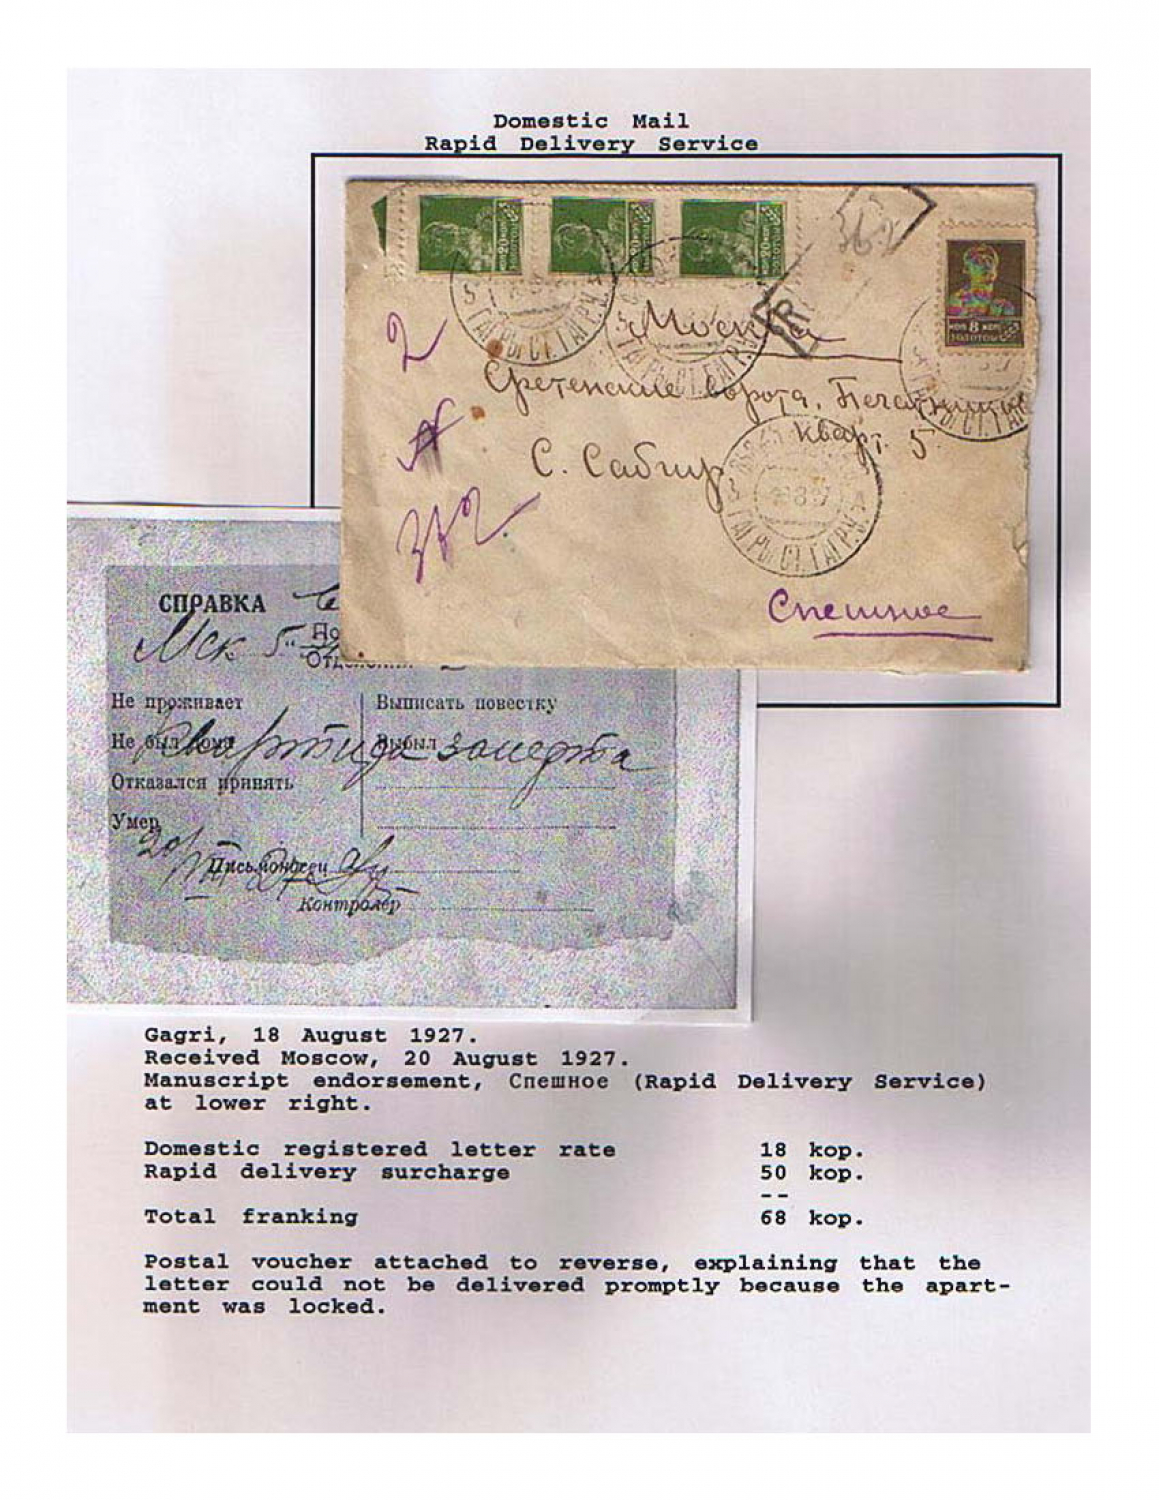 Domestic Mail
Rapid Delivery Service
коп 20 коп
золотом
коп 20 коп
золотом
коп 20 коп
золотом
362
R
коп 8 коп
золотом
2
Москва
Сретенские ворота, Печатников
кварт. 5
С. Сабир
ГАГРЫ СТ. ГАГР. У.
362
Спешное
СПРАВКА
Мск 5
Не проживает
Выписать повестку
Не был дома
Выбыл
Квартира заперта
Отказался принять
Умер
20/VIII
Письмоносец
Контролер
Gagri, 18 August 1927.
Received Moscow, 20 August 1927.
Manuscript endorsement, Спешное (Rapid Delivery Service)
at lower right.
Domestic registered letter rate 18 kop.
Rapid delivery surcharge 50 kop.
--
Total franking 68 kop.
Postal voucher attached to reverse, explaining that the
letter could not be delivered promptly because the apart-
ment was locked.